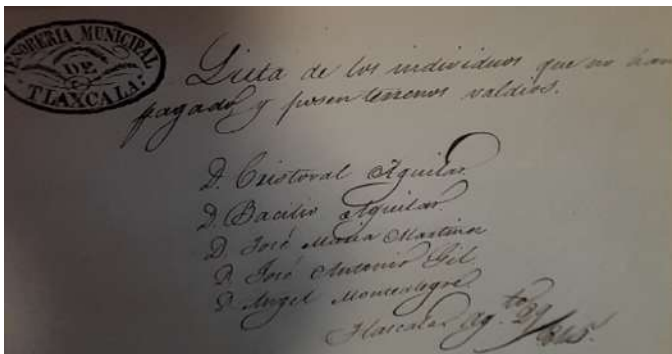 TESORERIA MUNICIPAL
DE
TLAXCALA.
Lista de los individuos que no han
pagado y poseen terrenos valdios.
D. Cristoval Aguilar.
D. Bacilio Aguilar.
D. José María Martinez
D. José Antonio Gil
D. Angel Montealegre.
Tlaxcala Ag.to 29/865.